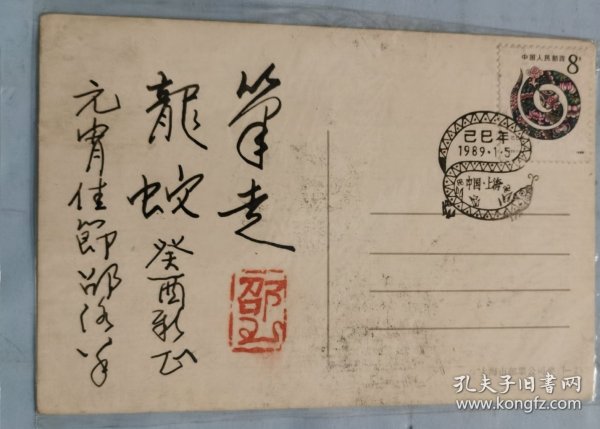 笔走
龍蛇
癸酉新正
元宵佳節邵洛羊
中国人民邮政 8分
己巳年
1989·1·5
中国·上海
孔夫子旧书网
www.kongfz.com